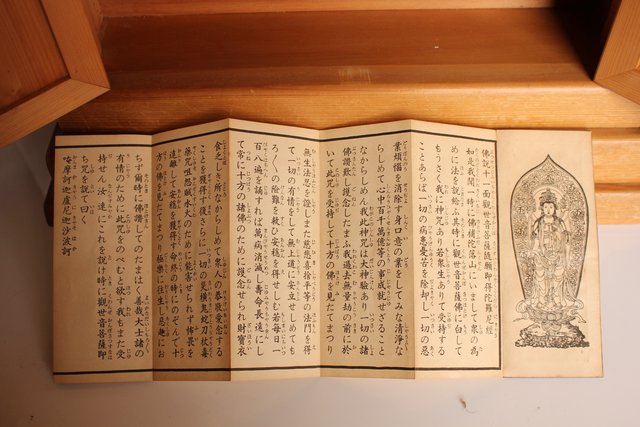 佛說十一面觀世音菩薩隨願即得陀羅尼經
如是我聞一時に佛補陀落山にいまして衆の爲
めに法を說給ふ其時に觀世音菩薩佛に白して
もうさく我に神咒あり若衆生ありて受持する
ことあらば一切の病患憂苦を除却し一切の惡
業煩惱を消除す身口意の業をしてみな清淨な
らしめて心中百千萬億等の事成就せざること
なからしめん我此神咒は大神驗あり一切の諸
佛讚歎し護念したまふ我過去無量劫の前に於
いて此咒を受持して十方の佛を見たてまつり
無生法忍を證しまた慈悲喜捨平等の法門を得
て一切の有情をして無上道に安立せしめしも
ろ〱の險難を救ひ安穩を得せしむ若每日一
百八遍を誦すれば萬病消滅し壽命長遠にし
て常に十方の諸佛のために護念せられ財寶衣
食乏しき所なからしめて衆人の恭敬愛念する
ことを獲得す復さらに一切の災橫鬼蛇刀杖毒
藥咒咀怨賊水火のために能害せられず怖畏を
遠離して安穩を獲得す命終の時にのぞんで十
方の佛を見たてまつり極樂に往生し惡趣にお
ちず爾時に佛讚してのたまはく善哉大士諸の
有情のために此咒をのべむと欲す我もまた受
持せん汝ぢ速にこれを說け時に觀世音菩薩即
ち咒を說て曰く
唵摩訶迦盧尼迦沙波訶